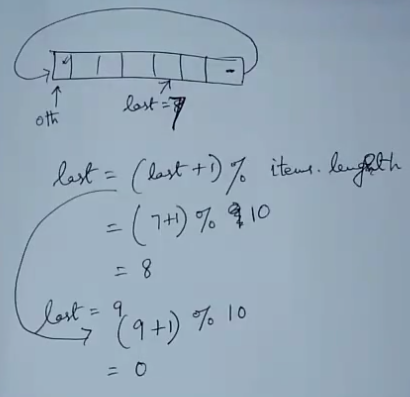 0th
last = 7
last = (last + 1) % items.length
= (7+1) % 10
= 8
last = 9
(9+1) % 10
= 0